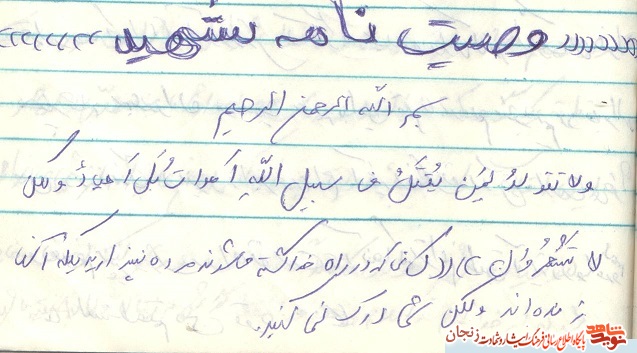 وصیت نامه شهید
بسم الله الرحمن الرحیم
ولا تقولوا لِمَن یُقتَلُ فی سبیلِ اللّهِ اَموات بَل اَحیاءٌ ولکن
لا تَشعُرُونَ )) کسانی که در راه خدا کشته میشوند مرده نپندارید بلکه آنها
زنده اند ولکن شما درک نمی کنید.
شاهد
نوید
پایگاه اطلاع رسانی فرهنگ ایثار و شهادت زنجان